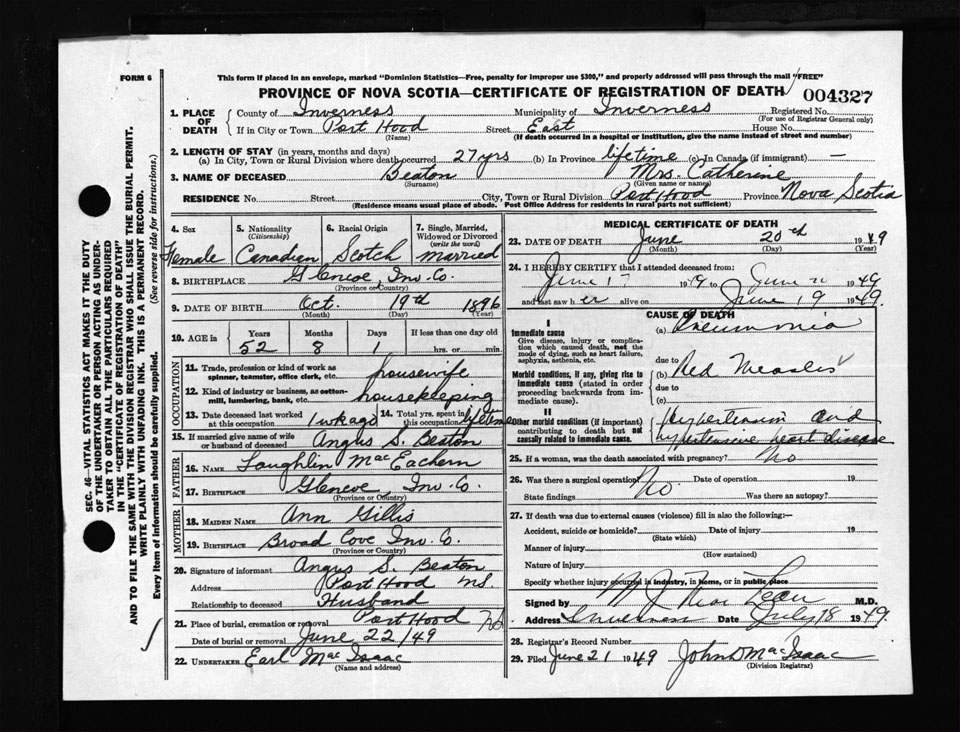 FORM 6
This form if placed in an envelope, marked "Dominion Statistics—Free, penalty for improper use $300," and properly addressed will pass through the mail "FREE"
PROVINCE OF NOVA SCOTIA—CERTIFICATE OF REGISTRATION OF DEATH
004327
1. PLACE OF DEATH County of Inverness Municipality of Inverness Registered No.
(For use of Registrar General only)
If in City or Town Port Hood Street East House No.
(Name) (If death occurred in a hospital or institution, give the name instead of street and number)
2. LENGTH OF STAY (in years, months and days)
(a) In City, Town or Rural Division where death occurred 27 yrs (b) In Province lifetime (c) In Canada (if immigrant) —
3. NAME OF DECEASED Beaton Mrs. Catherine
(Surname) (Given name or names)
RESIDENCE No. Street City, Town or Rural Division Port Hood Province Nova Scotia
(Residence means usual place of abode. Post Office Address for residents in rural parts not sufficient)
SEC. 46—VITAL STATISTICS ACT MAKES IT THE DUTY
OF THE UNDERTAKER OR PERSON ACTING AS UNDER-
TAKER TO OBTAIN ALL THE PARTICULARS REQUIRED
IN THE "CERTIFICATE OF REGISTRATION OF DEATH"
AND TO FILE THE SAME WITH THE DIVISION REGISTRAR WHO SHALL ISSUE THE BURIAL PERMIT.
WRITE PLAINLY WITH UNFADING INK. THIS IS A PERMANENT RECORD.
Every item of information should be carefully supplied. (See reverse side for instructions.)
4. Sex 5. Nationality (Citizenship) 6. Racial Origin 7. Single, Married, Widowed or Divorced (write the word)
Female Canadian Scotch Married
8. BIRTHPLACE Glencoe, Inv. Co.
(Province or Country)
9. DATE OF BIRTH Oct. 19th 1896
(Month) (Day) (Year)
10. AGE in Years Months Days If less than one day old
52 8 1 hrs. or min.
OCCUPATION
11. Trade, profession or kind of work as spinner, teamster, office clerk, etc. housewife
12. Kind of industry or business, as cotton-mill, lumbering, bank, etc. housekeeping
13. Date deceased last worked at this occupation 1 wk ago 14. Total yrs. spent in this occupation lifetime
15. If married give name of wife or husband of deceased Angus S. Beaton
FATHER
16. NAME Laughlin MacEachern
17. BIRTHPLACE Glencoe, Inv. Co.
(Province or Country)
MOTHER
18. MAIDEN NAME Ann Gillis
19. BIRTHPLACE Broad Cove Inv. Co.
(Province or Country)
20. Signature of informant Angus S. Beaton
Address Port Hood N.S.
Relationship to deceased Husband
21. Place of burial, cremation or removal Port Hood
Date of burial or removal June 22/49
22. UNDERTAKER Earl MacIsaac
(Name and address)
MEDICAL CERTIFICATE OF DEATH
23. DATE OF DEATH June 20th 1949
(Month) (Day) (Year)
24. I HEREBY CERTIFY that I attended deceased from:
June 17 1949 to June 1949
and last saw her alive on June 19 1949.
CAUSE OF DEATH
I
Immediate cause (a) Pneumonia
Give disease, injury or complication which caused death, not the mode of dying, such as heart failure, asphyxia, asthenia, etc.
due to
Morbid conditions, if any, giving rise to immediate cause (stated in order proceeding backwards from immediate cause). (b) Red Measles
due to
(c)
II
Other morbid conditions (if important) contributing to death but not causally related to immediate cause. Hypertension and
hypertensive heart disease
25. If a woman, was the death associated with pregnancy? No
26. Was there a surgical operation? No. Date of operation 19
State findings Was there an autopsy?
27. If death was due to external causes (violence) fill in also the following:—
Accident, suicide or homicide? Date of injury 19
(State which)
Manner of injury
(How sustained)
Nature of injury
Specify whether injury occurred in industry, in home, or in public place
Signed by M J MacLean M.D.
Address Inverness Date July 18 1949
28. Registrar's Record Number
29. Filed June 21 1949 John D MacIsaac
(Division Registrar)